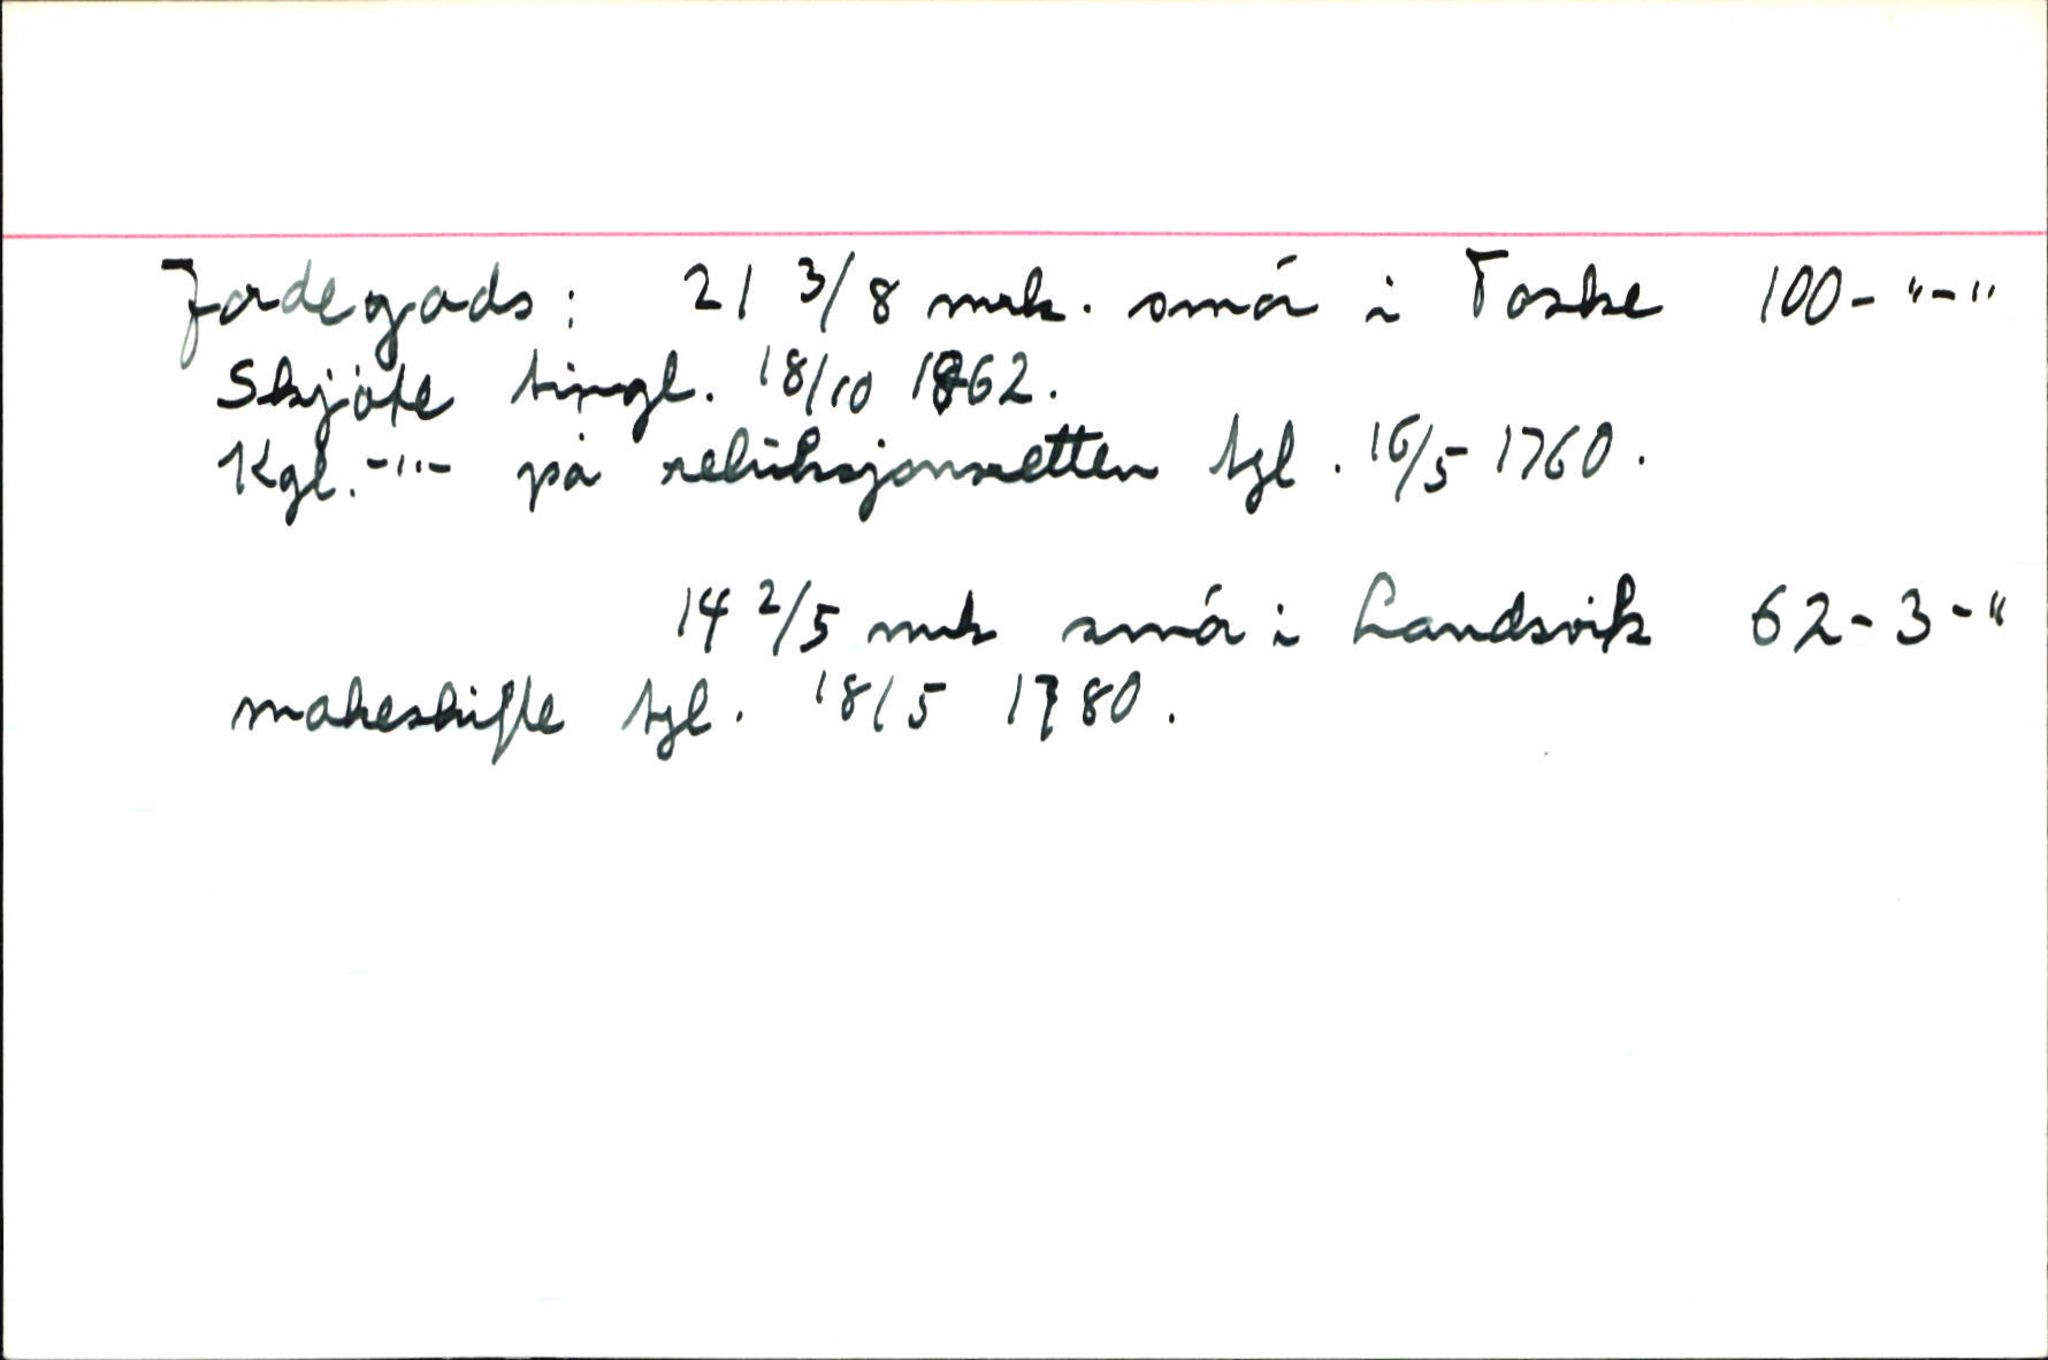 Jordegods: 21 3/8 mrk. smör i Toske 100-"-"
Skjöte tingl. 18/10 1762.
Kgl. -"- på reluksjonsretten tgl. 16/5 1760.
14 2/5 mrk smör i Landsvik 62-3-"
makeskifte tgl. 18/5 1780.